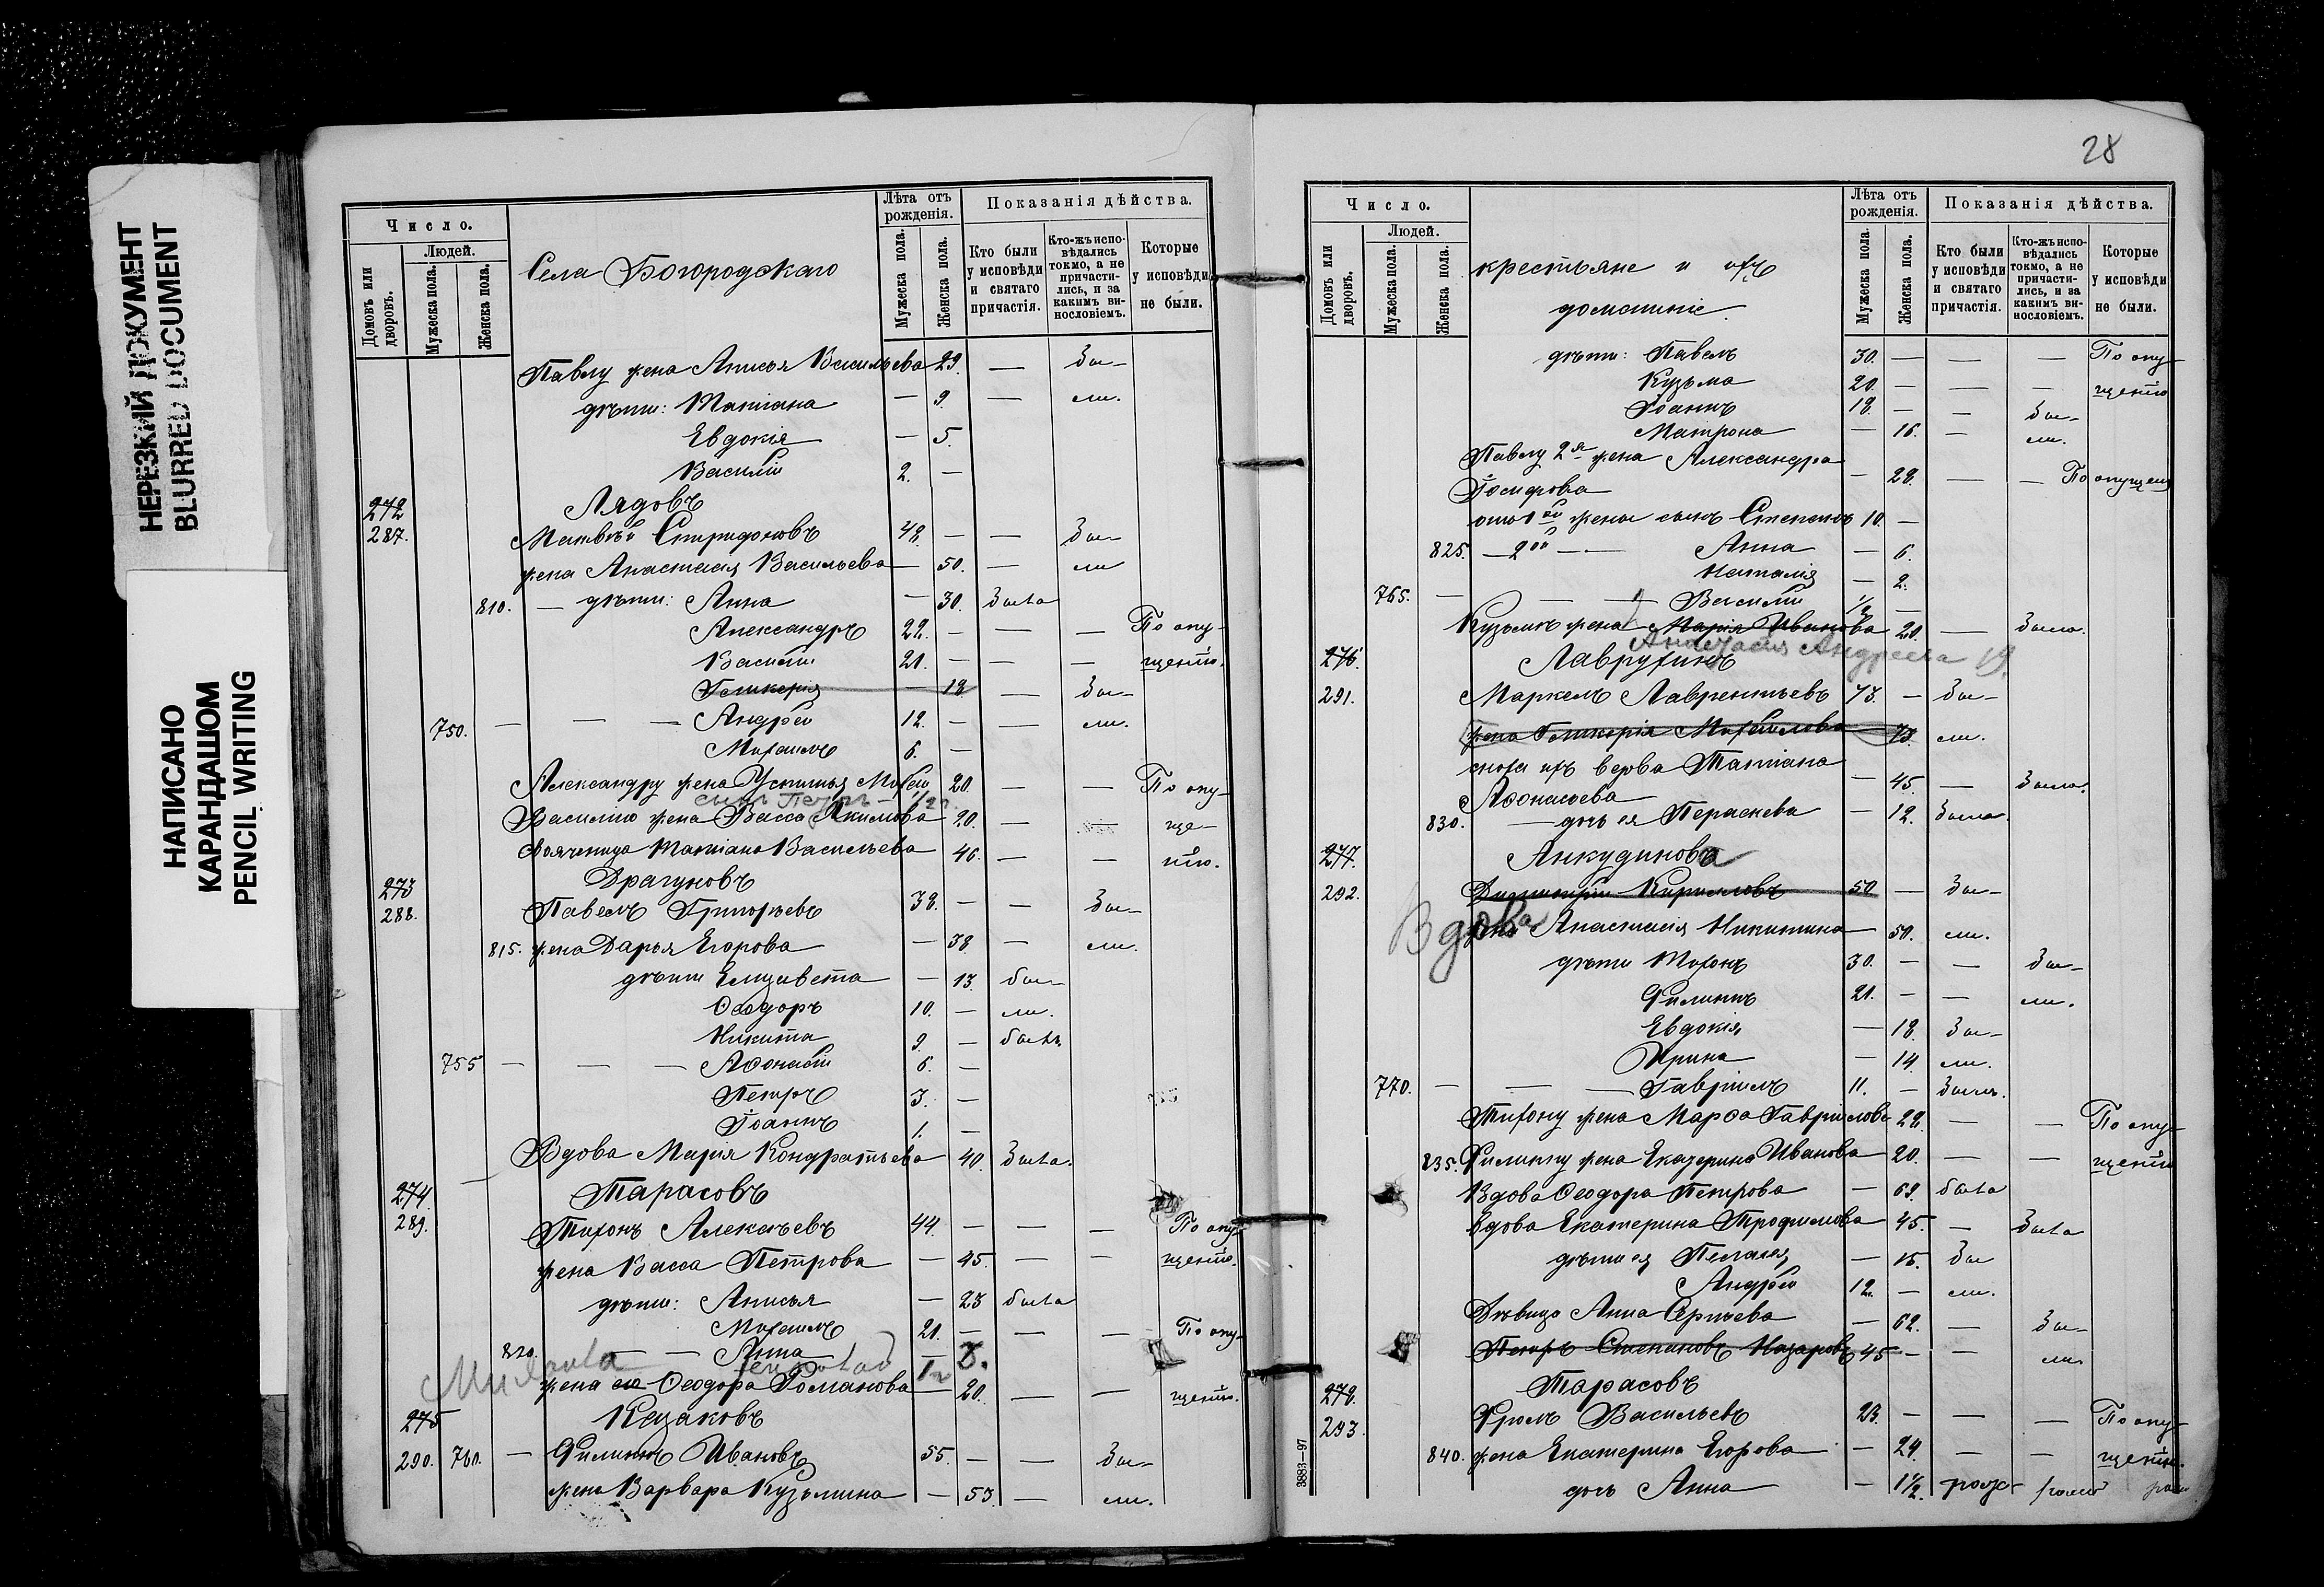 НЕРЕЗКИЙ ДОКУМЕНТ
BLURRED DOCUMENT
НАПИСАНО
КАРАНДАШОМ
PENCIL WRITING
Число.
Людей.
Домовъ или дворовъ.
Мужеска пола.
Женска пола.
Села Богородскаго
Лѣта отъ рожденія.
Мужеска пола.
Женска пола.
Показанія дѣйства.
Кто были у исповѣди и святаго причастія.
Кто-жъ исповѣдались токмо, а не причастились, и за какимъ винословіемъ.
Которые у исповѣди не были.
Павлу жена Анисья Васильева 29. — Бы-
дѣти: Татіана — 9. — ли.
Евдокія — 5.
Василій 2. —
272 Лядовъ
287. Матвѣй Спиридоновъ 48. — — Бы-
жена Анастасія Васильева — 50. — ли
810. — дѣти: Анна — 30. Была
Александръ 22. — — — По опу-
Василій 21. — — — щенію.
Гликерія — 18 — Бы-
750. — — — Андрей 12. — — ли.
Михаилъ 6. —
Александру жена Устинья 20. — — По опу-
сынъ Петръ
Василію жена Васса Акимова 20. — — ще-
своячница Татіана Васильева 46. — — нію.
273 Драгуновъ
288. Павелъ Григорьевъ 38. — — Бы-
815. жена Дарья Егорова — 38. — ли.
дѣти Елизавета — 13. бы-
Ѳеодоръ 10. — ли.
Никита 9. — былъ
755 — — — Аѳонасій 6. —
Петръ 3. —
Іоаннъ 1. —
Вдова Марія Кондратьева 40. Была.
274. Тарасовъ
289. Тихонъ Алексѣевъ 44. — — — По опу-
жена Васса Петрова — 45. — — щенію.
дѣти: Анисья — 23 была
Михаилъ 21. — — — По опу-
820. — — Анна — 8.
жена его Ѳеодора Романова — 20. — — щенію.
275 Казаковъ
290. 760. — Филиппъ Ивановъ 55. — — Бы-
жена Варвара Кузьмина — 53. — ли.
28
Число.
Людей.
Домовъ или дворовъ.
Мужеска пола.
Женска пола.
крестьяне и ихъ
домашніе.
Лѣта отъ рожденія.
Мужеска пола.
Женска пола.
Показанія дѣйства.
Кто были у исповѣди и святаго причастія.
Кто-жъ исповѣдались токмо, а не причастились, и за какимъ винословіемъ.
Которые у исповѣди не были.
дѣти: Павелъ 30. — — — По опу-
Кузьма 20. — — — щенію
Іоаннъ 18. — — Бы-
Матрона — 16. — ли.
Павлу 2я жена Александра
Іосифова — 28. — — По опущен
отъ 1ой жены сынъ Степанъ 10. —
825. — 2ой — — Анна — 6.
Наталія — 2.
765. — — — Василій 1/2 —
Кузьмѣ жена Марія Иванова 20. — Была.
Анастасія Андреева 19.
276. Лаврухинъ
291. Маркелъ Лаврентьевъ 73. — Бы-
жена Гликерія Михайлова 73. ли.
сноха ихъ вдова Татіана
Аѳонасьева — 45. — Была.
830. — дочь ея Параскева — 12. Была.
277. Анкудинова
292. Димитрій Кирилловъ 50 — Бы-
Вдова
жена Анастасія Никитина — 50. ли.
дѣти Тихонъ 30. — — Бы-
Филиппъ 21. — — ли.
Евдокія — 18. Бы-
Ирина — 14. ли.
770. — — — Гавріилъ 11. — Былъ.
Тихону жена Марѳа Гавріилова 28. — — По опу-
835. Филиппу жена Екатерина Иванова 20. — — щенію
Вдова Ѳеодора Петрова — 69. была
Вдова Екатерина Трофимова 45. — Была
дѣти ея Пелагея — 15. Бы
Андрей 12. — ли.
Дѣвица Анна Сергѣева — 62. — Бы-
Петръ Степановъ Назаровъ 45 — — ли
278. Тарасовъ
293. Фролъ Васильевъ 23. — — — По опу-
840. жена Екатерина Егорова — 24. — — щенію.
дочь Анна — 1½.
3883—97